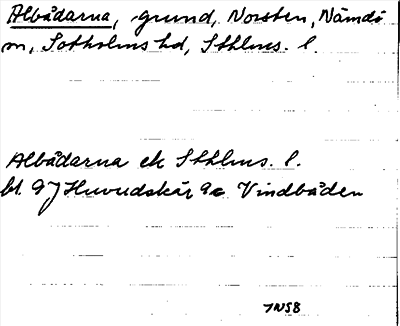 Albådarna, grund, Norsten, Nämdö
sn, Sotholms hd, Sthlms. l.
Albådarna ek Sthlms. l.
bl. 9J Huvudskär 9c Vindbåden